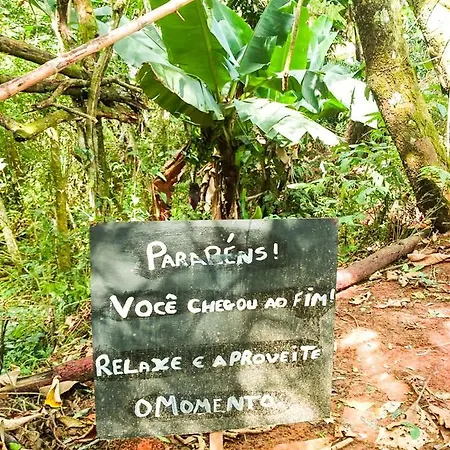 PARABÉNS!
VOCÊ CHEGOU AO FIM!
RELAXE E APROVEITE
O MOMENTO.